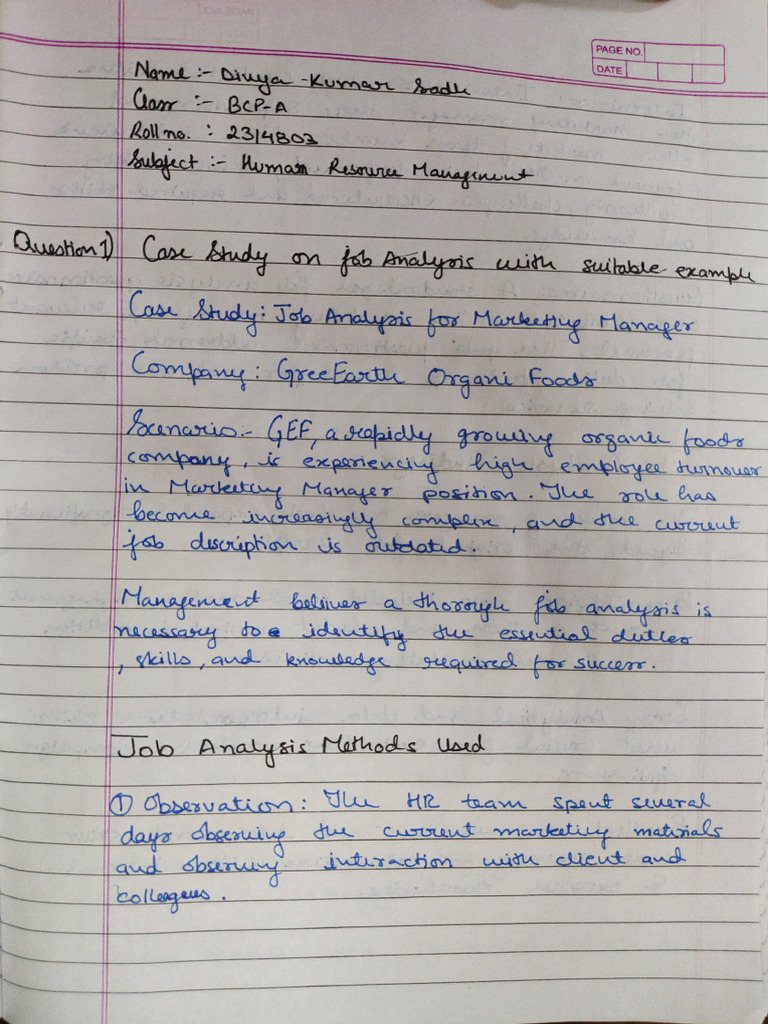 PAGE NO.
DATE
Name :- Divya Kumar Sadh
Class :- BCP-A
Roll no. : 23/4803
Subject :- Human Resource Management
Question 1) Case Study on Job Analysis with suitable example
Case Study: Job Analysis for Marketing Manager
Company: GreeEarth Organi Foods
Scenario:- GEF, a rapidly growing organic foods
company, is experiencing high employee turnover
in Marketing Manager position. The role has
become increasingly complex, and the current
job description is outdated.
Management believes a thorough job analysis is
necessary to identify the essential duties
, skills, and knowledge required for success.
Job Analysis Methods Used
① Observation: The HR team spent several
days observing the current marketing materials
and observing interaction with client and
colleagues.